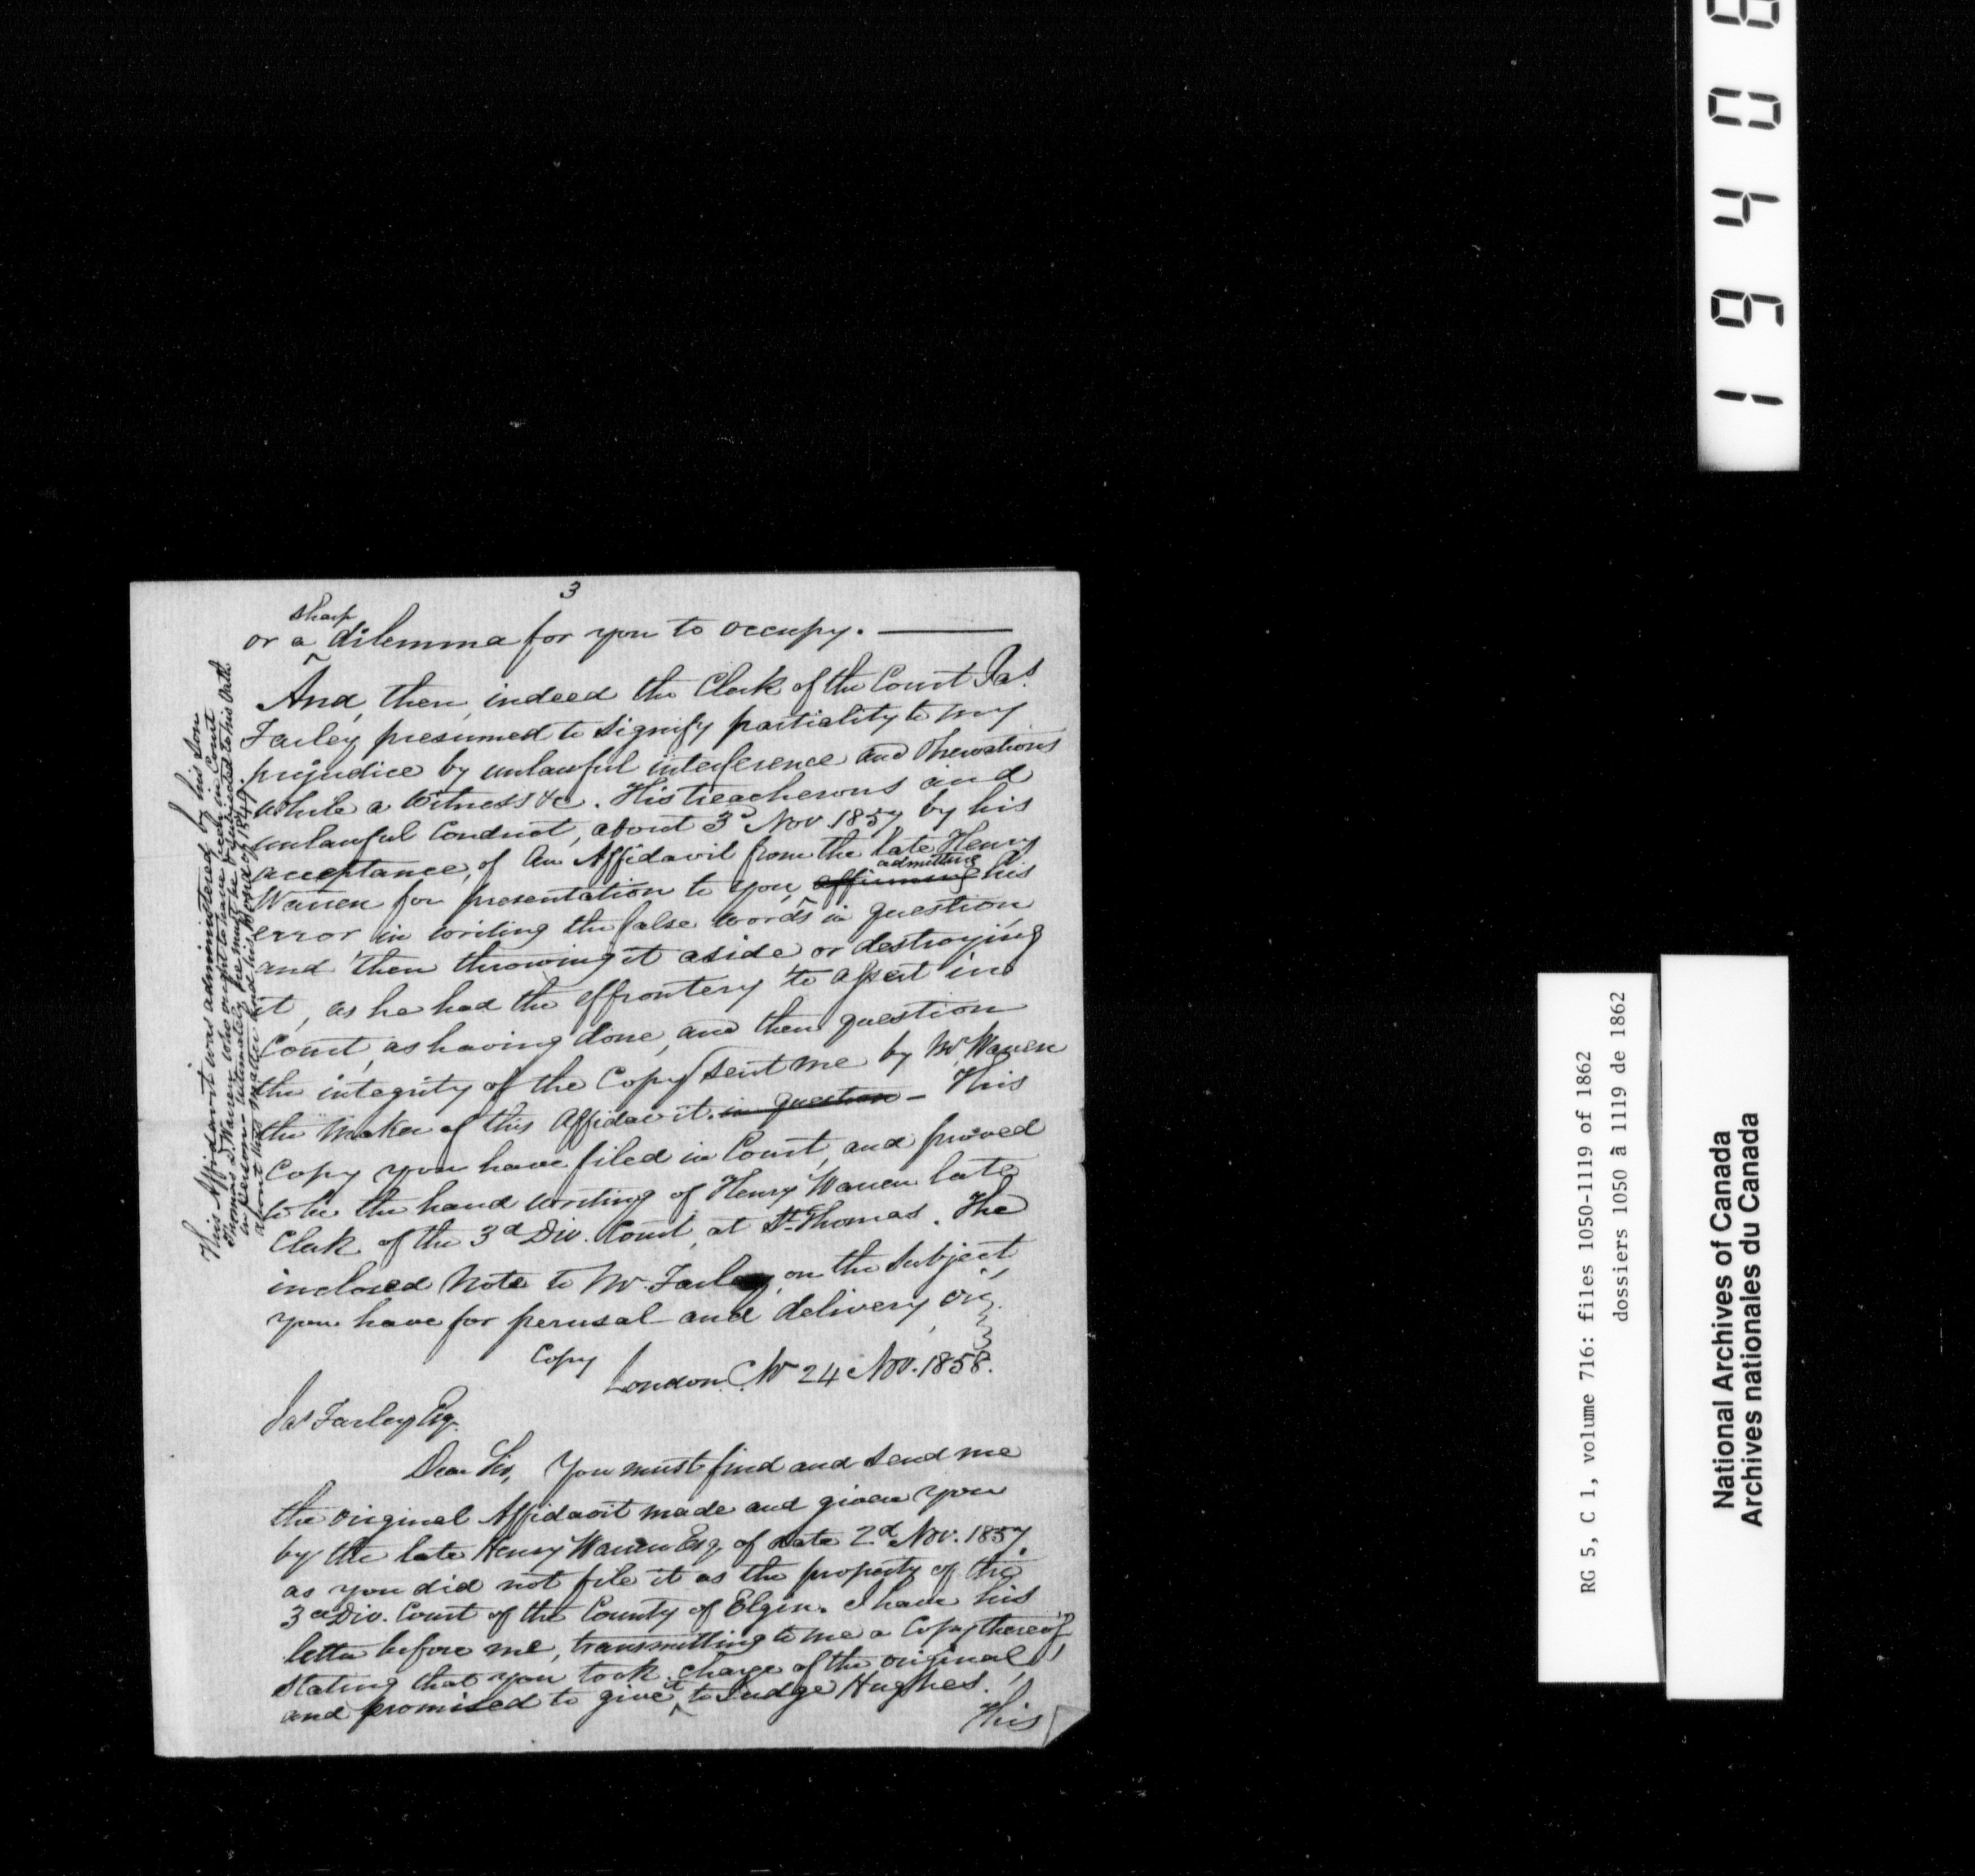 3
or a sharp dilemma for you to occupy.
And, then, indeed the Clerk of the Court Jas.
Farley presumed to signify partiality to my
prejudice by unlawful interference and
while a witness &c. His treacherous and
unlawful conduct, about 3d Nov 1857, by his
acceptance, of an Affidavit from the late Henry
Warren for presentation to you, affirming admitting his
error in writing the false words in question,
and then throwing it aside or destroying
it, as he had the effrontery to assert in
Court, as having done, and then question
the integrity of the Copy sent me by Mr Warren
the Maker of this Affidavit. in question - This
Copy you have filed in Court, and proved
to be the hand writing of Henry Warren late
Clerk of the 3d Div. Court, at St Thomas. The
inclosed Note to Mr. Farley, on the subject
you have for perusal and delivery, viz.
Copy
London C.W 24 Nov. 1858.
Jas Farley Esq.
Dear Sir, You must find and send me
the original Affidavit made and given you
by the late Henry Warren Esq of date 2d Nov. 1857.
as you did not file it as the property of the
3d Div. Court of the County of Elgin. I have his
letter before me, transmitting to me a Copy thereof,
stating that you took charge of the original,
and promised to give it to Judge Hughes.
This
This Affidavit was administered by his son
Thomas D. Warren who ought to have been in Court
in person - ultimately he must be subjected to his Oath
about this matter and his Bond of 1849.
19408
RG 5, C 1, volume 716: files 1050-1119 of 1862
dossiers 1050 à 1119 de 1862
National Archives of Canada
Archives nationales du Canada